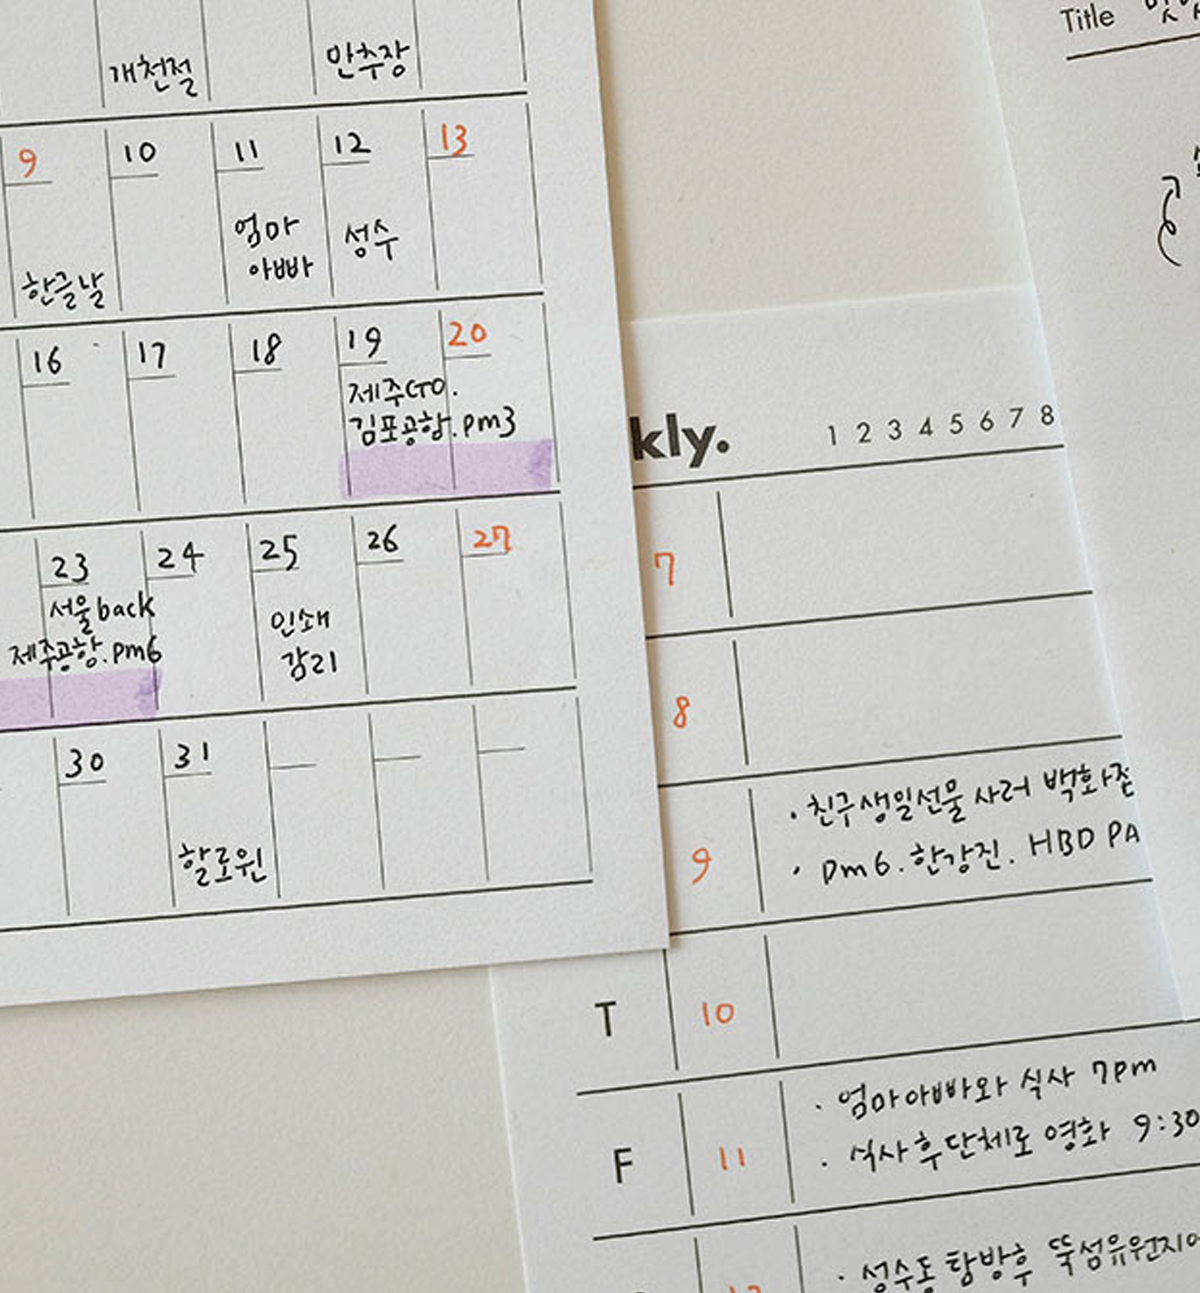 개천절
만추장
9
10
11
12
13
엄마
아빠
성수
한글날
16
17
18
19
20
제주GO.
김포공항.pm3
23
24
25
26
27
서울back
제주공항.pm6
인쇄
감리
30
31
할로윈
kly.
1 2 3 4 5 6 7 8
7
8
9
· 친구생일선물 사러
· pm6.한강진. HBD PA
T
10
F
11
· 엄마아빠와 식사 7pm
· 식사 후 단체로 영화 9:30
· 성수동 탐방후 뚝섬유원지
Title